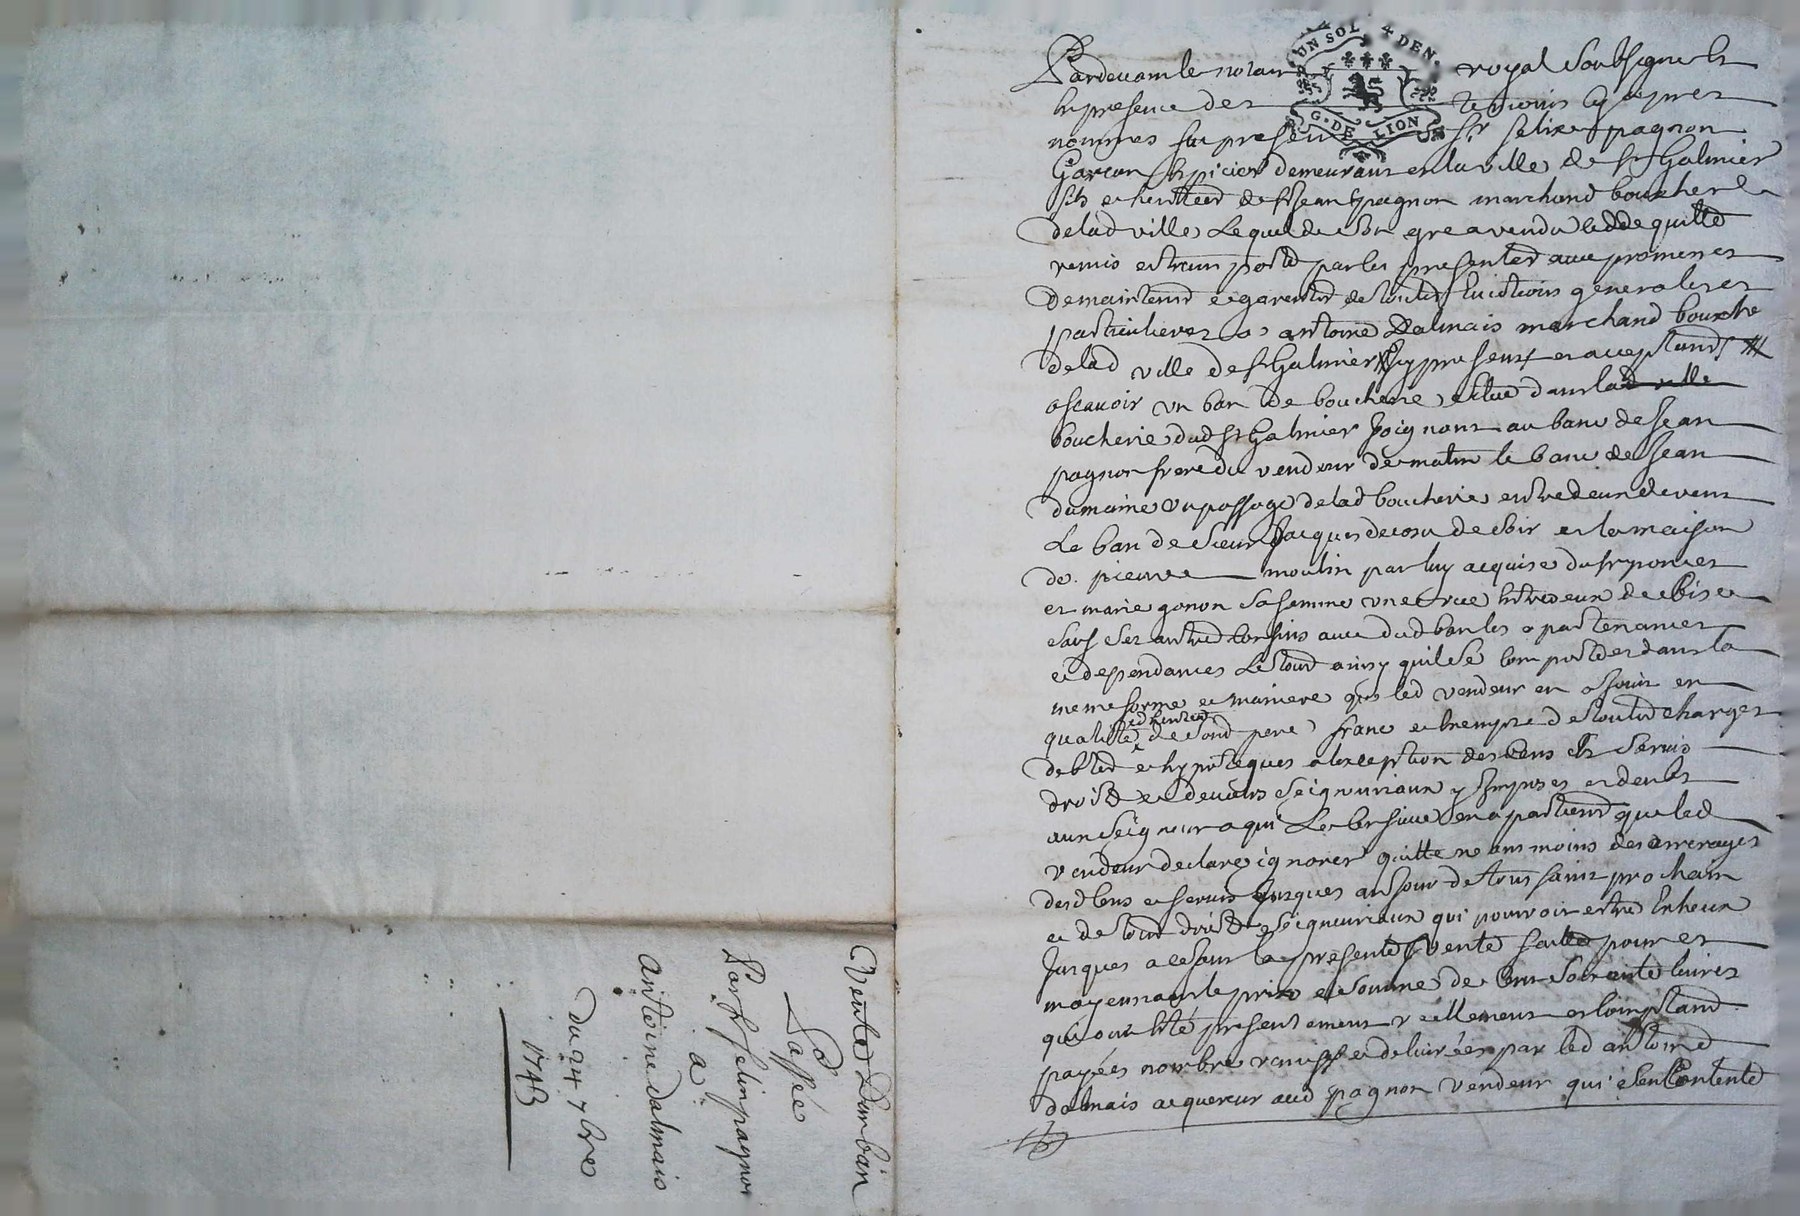 Vente Dun ban
Passée
Par sr felix pagnon
a
antoine dalmais
du 24 7bre
1743
UN SOL 4 DEN.
G. DE LION
Pardevant le notaire royal Soubsigné et
en presence des temoins cy apres
nommes fut present sr felix pagnon
Garcon Epicier demeurant en la ville de st Galmier
fils et heritier de sr Jean pagnon marchand boucher
de lad ville Lequel de son gre a vendu cedde quitté
remis et transporté par les presentes avec promesses
de maintenir et garentir de toutes evictions generales et
particulieres a antoine Dalmais marchand bouche
de lad ville de st Galmier icy present et acceptant
ascavoir un ban de boucherie scitue dans la
boucherie dud st Galmier Joignant au banc de Jean
pagnon frere du vendeur de matin le banc de Jean
dumaine un passage de lad boucherie entredeux de vent
Le ban de sieur Jacques de soir et la maison
de pierre moulin par luy acquise du sr poncet
et marie gonon sa femme une rue entredeux de bise
sauf ses autres confins avec dud ban les apartenances
et dependances Le tout ainsy quil se comporte et dans la
meme forme et maniere que led vendeur en a jouit en
qualité dheritier de sond pere franc et exempt de toutes charges
debtes et hypoteques a lexception des cens et servis
droits et devoirs seigneuriaux y imposes et deubs
au seigneur a qui Le censive en apartient que led
vendeur declare ignorer quitte neanmoins des arrerages
desd cens et servis jusques au jour de tous saint prochain
et de tous droits seigneuriaux qui pourroient etre encheux
Jusques a ce jour la presente vente faitte pour et
moyennant le prix et somme de cent soixante livres
qui ont été presentement reellement et comptant
payées nombrées remises et delivrées par led antoine
dalmais acquereur aud pagnon vendeur qui sen contente